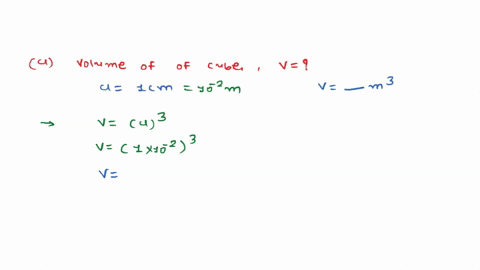 (a) volume of of cube, V = ?
a = 1cm = 10⁻² m V = __ m³
→ V = (a)³
V = (1×10⁻²)³
V =